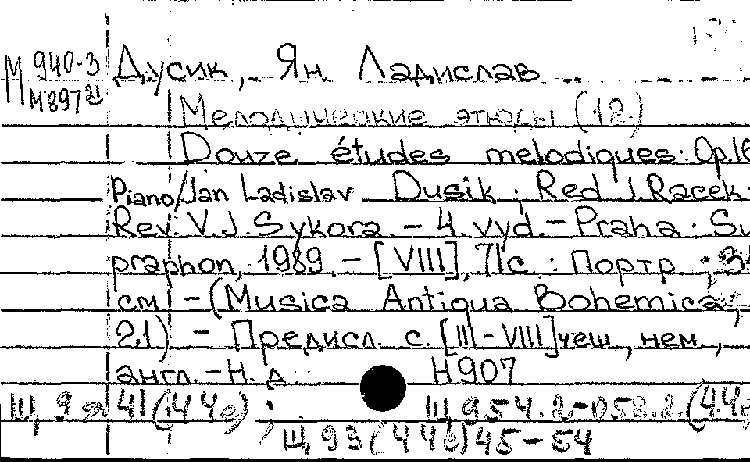 М 940-3
М897 21
Дусик, Ян Ладислав
Мелодические этюды (12)
Douze études melodiques: Op.16
Piano/Jan Ladislav Dusik; Red J. Racek
Rev. V.J. Sykora. - 4. vyd. - Praha: Su
praphon, 1989. - [VIII], 71с.: Портр.;
см - (Musica Antiqua Bohemica;
21) - Предисл. с. [III-VIII] чеш., нем.,
англ. - Н. д. Н907
Щ,9я41(44е); Щ954.2-052.2.(44
Щ,93(44е)45-54